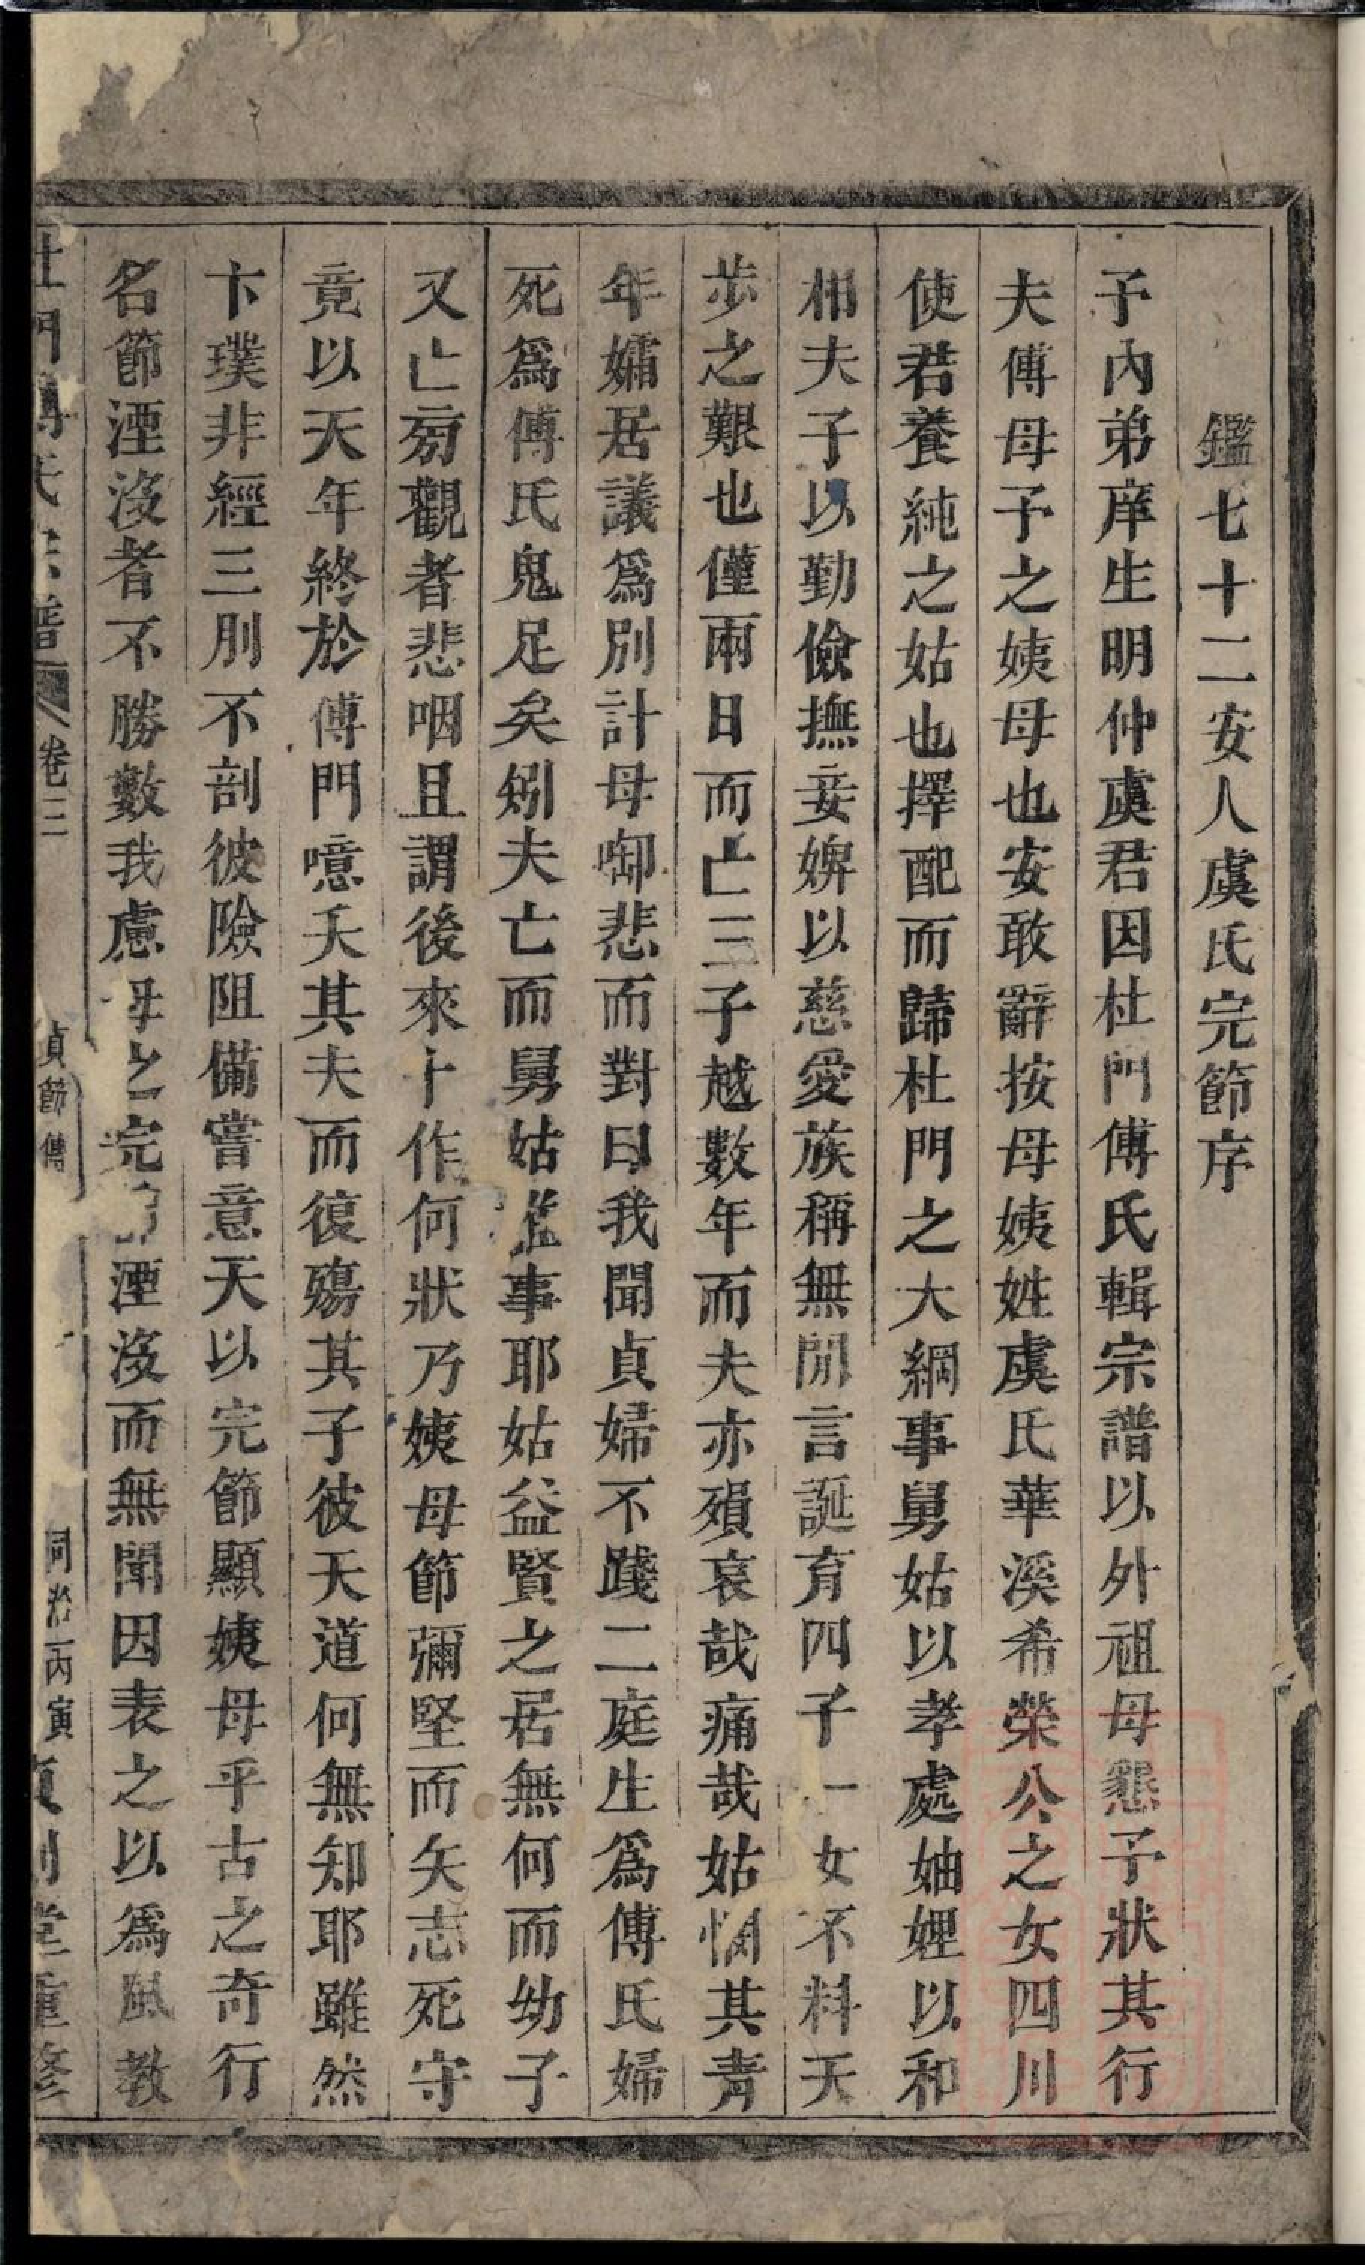 鑑七十二安人虞氏完節序
予內弟庠生明仲虞君因杜門傅氏輯宗譜以外祖母懇予狀其行
夫傅母予之姨母也安敢辭按母姨姓虞氏華溪希榮公之女四川
使君養純之姑也擇配而歸杜門之大綱事舅姑以孝處妯娌以和
相夫子以勤儉撫妾婢以慈愛族稱無閒言誕育四子一女不料天
步之艱也僅兩日而亡三子越數年而夫亦殞哀哉痛哉姑憫其靑
年孀居議爲別計母啣悲而對曰我聞貞婦不踐二庭生爲傅氏婦
死爲傅氏鬼足矣矧夫亡而舅姑誰事耶姑益賢之居無何而幼子
又亡旁觀者悲咽且謂後來十作何狀乃姨母節彌堅而矢志死守
竟以天年終於傅門噫夭其夫而復殤其子彼天道何無知耶雖然
卞璞非經三刖不剖彼險阻備嘗意天以完節顯姨母乎古之奇行
名節湮沒者不勝數我慮母之完節湮沒而無聞因表之以爲風教
杜門傅氏宗譜 卷三 貞節傳 同治丙寅 堂重修